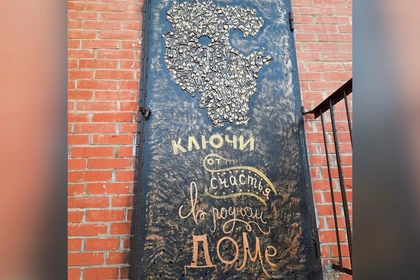 КЛЮЧИ
ОТ
СЧАСТЬЯ
в родном
ДОМе